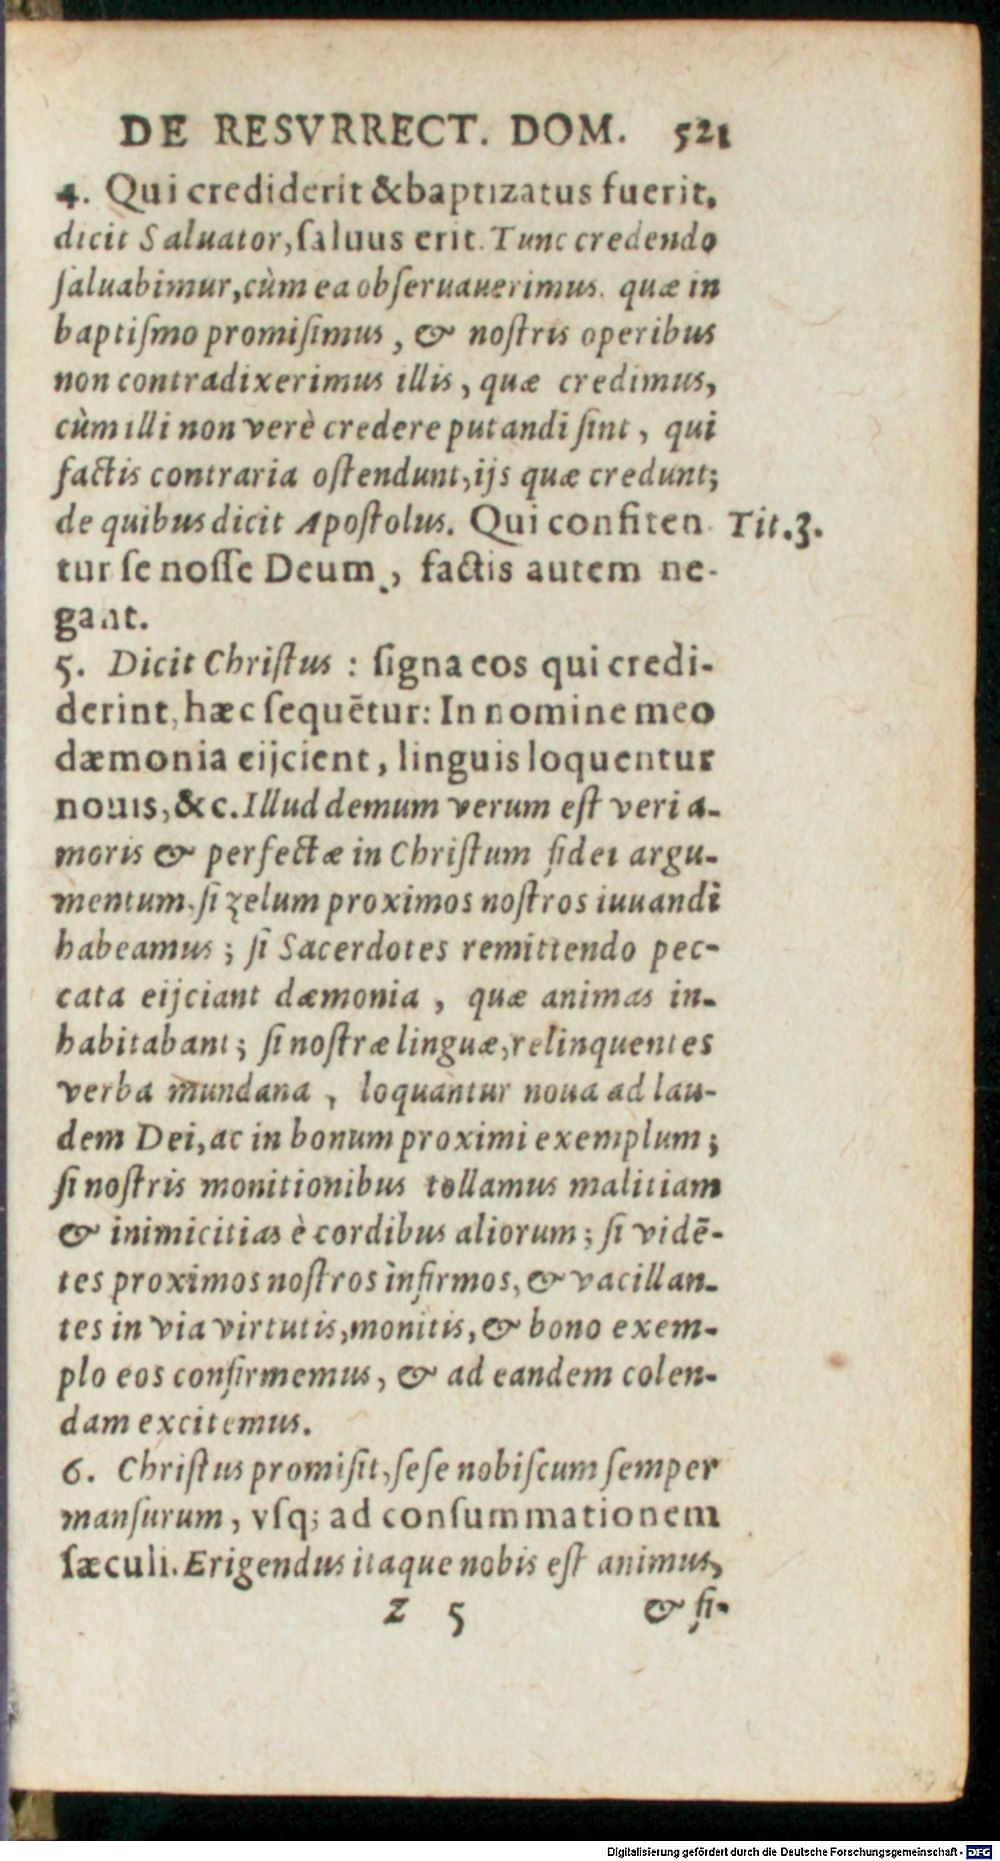 DE RESVRRECT. DOM. 521
4. Qui crediderit & baptizatus fuerit,
dicit Saluator, saluus erit. Tunc credendo
ſaluabimur, cùm ea obſeruauerimus. quæ in
baptiſmo promiſimus, & noſtris operibus
non contradixerimus illis, quæ credimus,
cùm illi non verè credere putandi ſint, qui
factis contraria oſtendunt, ijs quæ credunt;
de quibus dicit Apoſtolus. Qui confiten Tit.3.
tur ſe noſſe Deum, factis autem ne-
gant.
5. Dicit Chriſtus: ſigna eos qui credi-
derint, hæc ſequẽtur: In nomine meo
dæmonia eijcient, linguis loquentur
nouis, &c. Illud demum verum eſt veri a-
moris & perfectæ in Chriſtum fidei argu-
mentum. ſi zelum proximos noſtros iuuandi
habeamus; ſi Sacerdotes remittendo pec-
cata eijciant dæmonia, quæ animas in-
habitabant; ſi noſtræ linguæ, relinquentes
verba mundana, loquantur noua ad lau-
dem Dei, ac in bonum proximi exemplum;
ſi noſtris monitionibus tollamus malitiam
& inimicitias è cordibus aliorum; ſi vidẽ-
tes proximos noſtros infirmos, & vacillan-
tes in via virtutis, monitis, & bono exem-
plo eos confirmemus, & ad eandem colen-
dam excitemus.
6. Chriſtus promiſit, ſeſe nobiſcum ſemper
manſurum, vſq; ad conſummationem
ſæculi. Erigendus itaque nobis eſt animus,
Z 5 & fi-
Digitalisierung gefördert durch die Deutsche Forschungsgemeinschaft - DFG